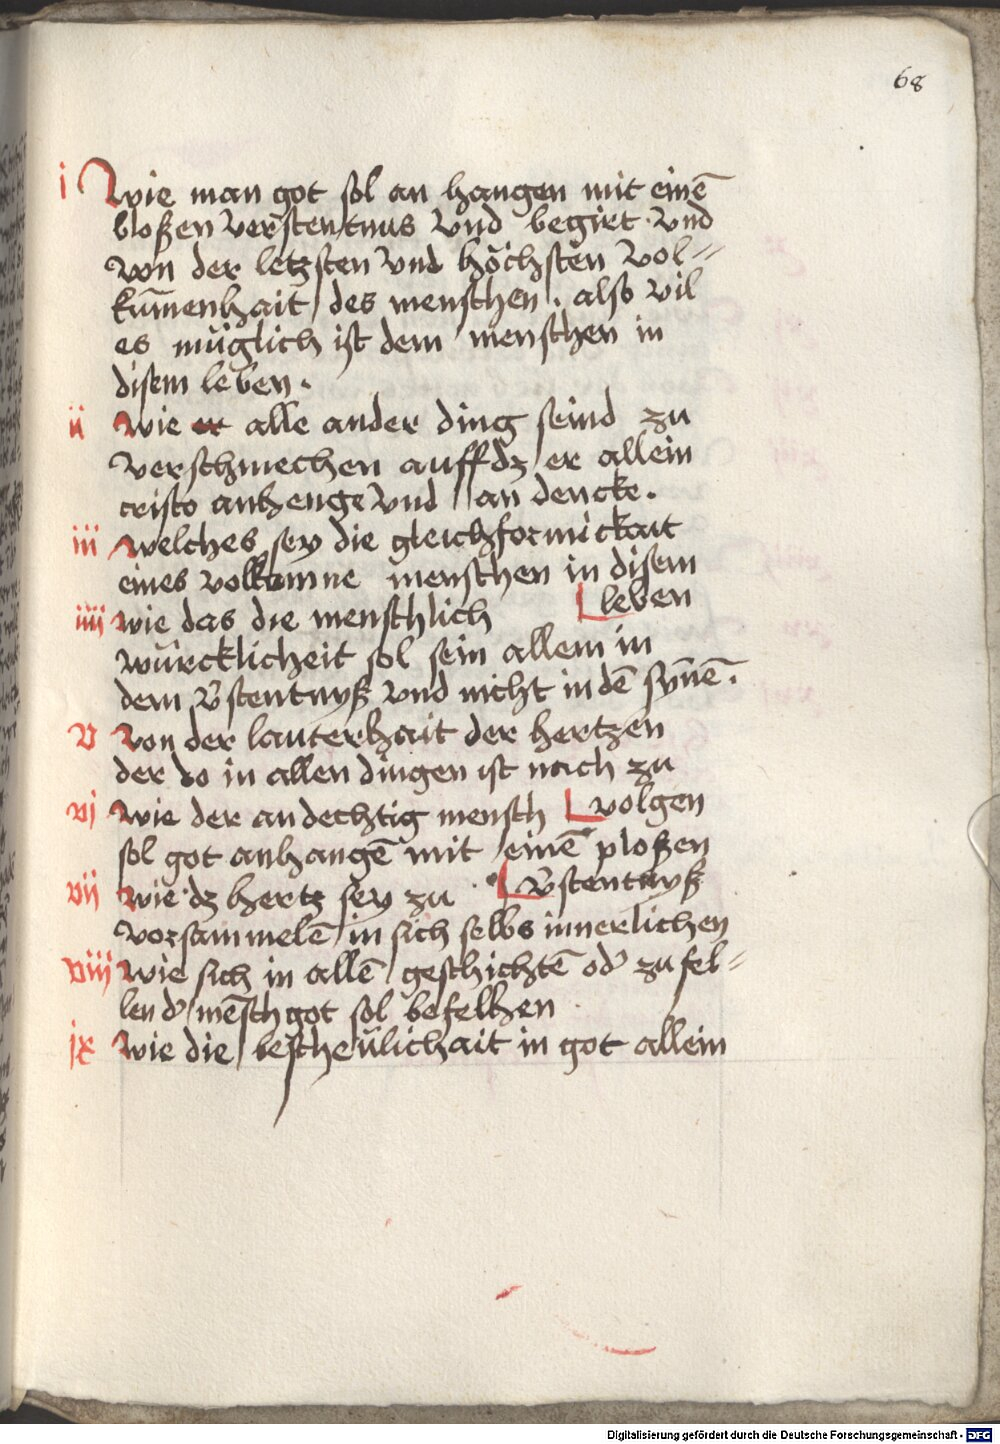 68
i wie man got sol an hangen mit einē
bloßen verstentnus vnd begirt · vnd
von der letzsten vnd höchsten vol=
kūmenhait des menschen . also vil
es müglich ist dem menschen in
disem leben .
ii wie er alle ander ding seind zu
verschmechen auff dz er allein
cristo anhenge vnd an dencke .
iii welches sey die gleichformickait
eines volkomne menschen in disem
leben
iiii wie das die menschlich
würcklicheit sol sein allein in
dem v̄stentnyß vnd nicht in dē sȳnē .
v von der lauterhait der hertzen
der do in allen dingen ist nach zu
volgen
vi wie der andechtig mensch
sol got anhangē mit einē ploßen
v̄stentnyß
vii wie dz hertz sey zu
vorsammelē in sich selbs innerlichen
viii wie sich in allē geschichtē od' zufel=
len d' mēsch got sol befelhen
ix wie die bescheülichait in got allein
Digitalisierung gefördert durch die Deutsche Forschungsgemeinschaft - DFG